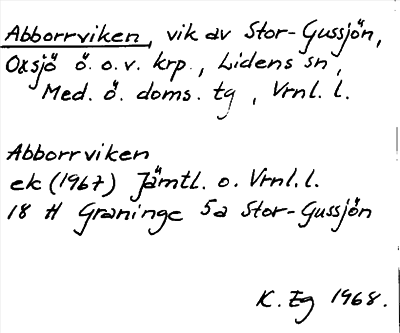 Abborrviken, vik av Stor-Gussjön,
Oxsjö ö.o.v. krp., Lidens sn,
Med. ö. doms. tg, Vrnl. l.
Abborrviken
ek (1967) Jämtl. o. Vrnl. l.
18 H Graninge 5a Stor-Gussjön
K. Eg 1968.